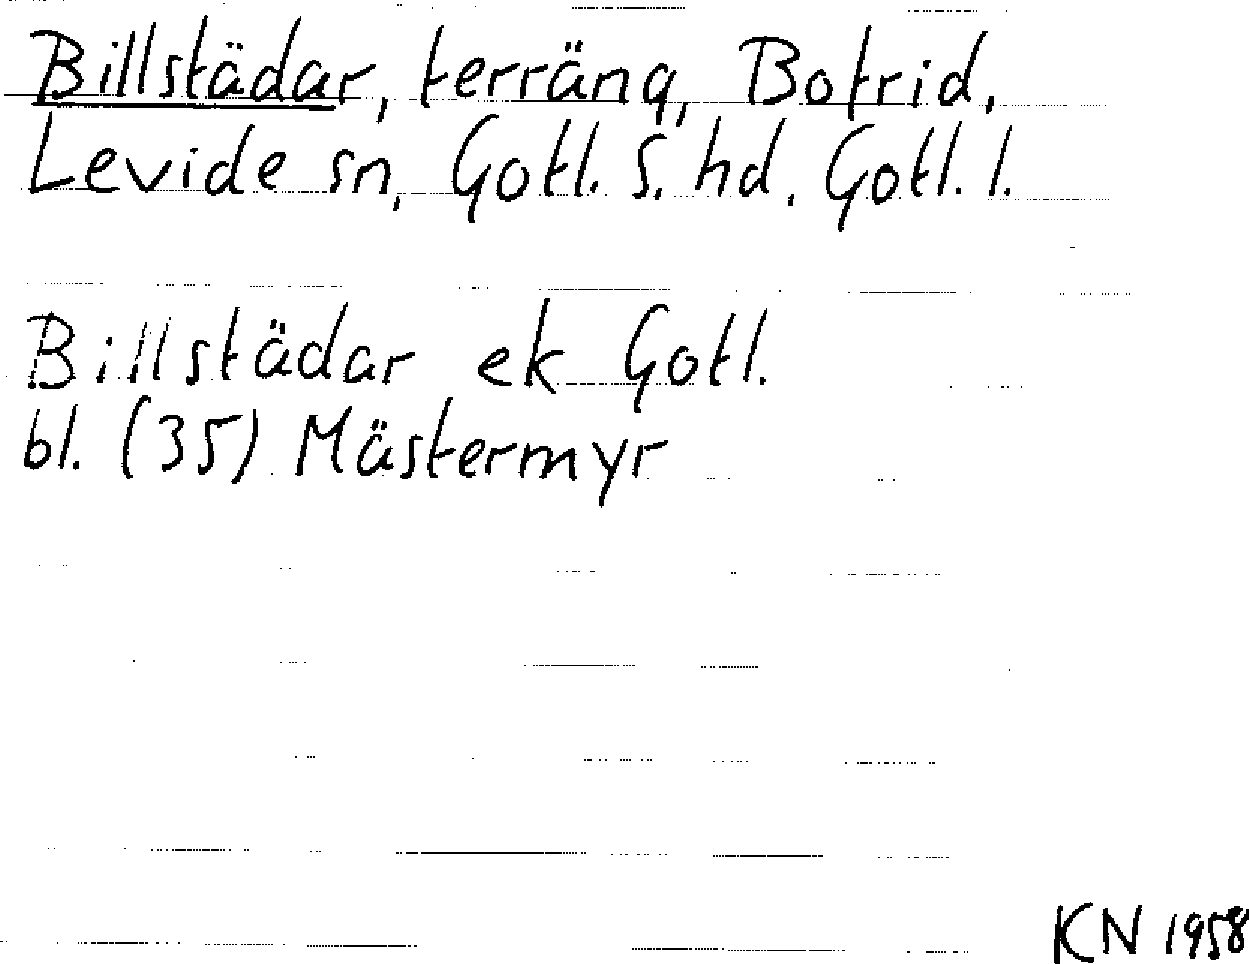 Billstädar, terräng, Botrid,
Levide sn, Gotl. S. hd. Gotl. l.
Billstädar ek Gotl.
bl. (35) Mästermyr
KN 1958